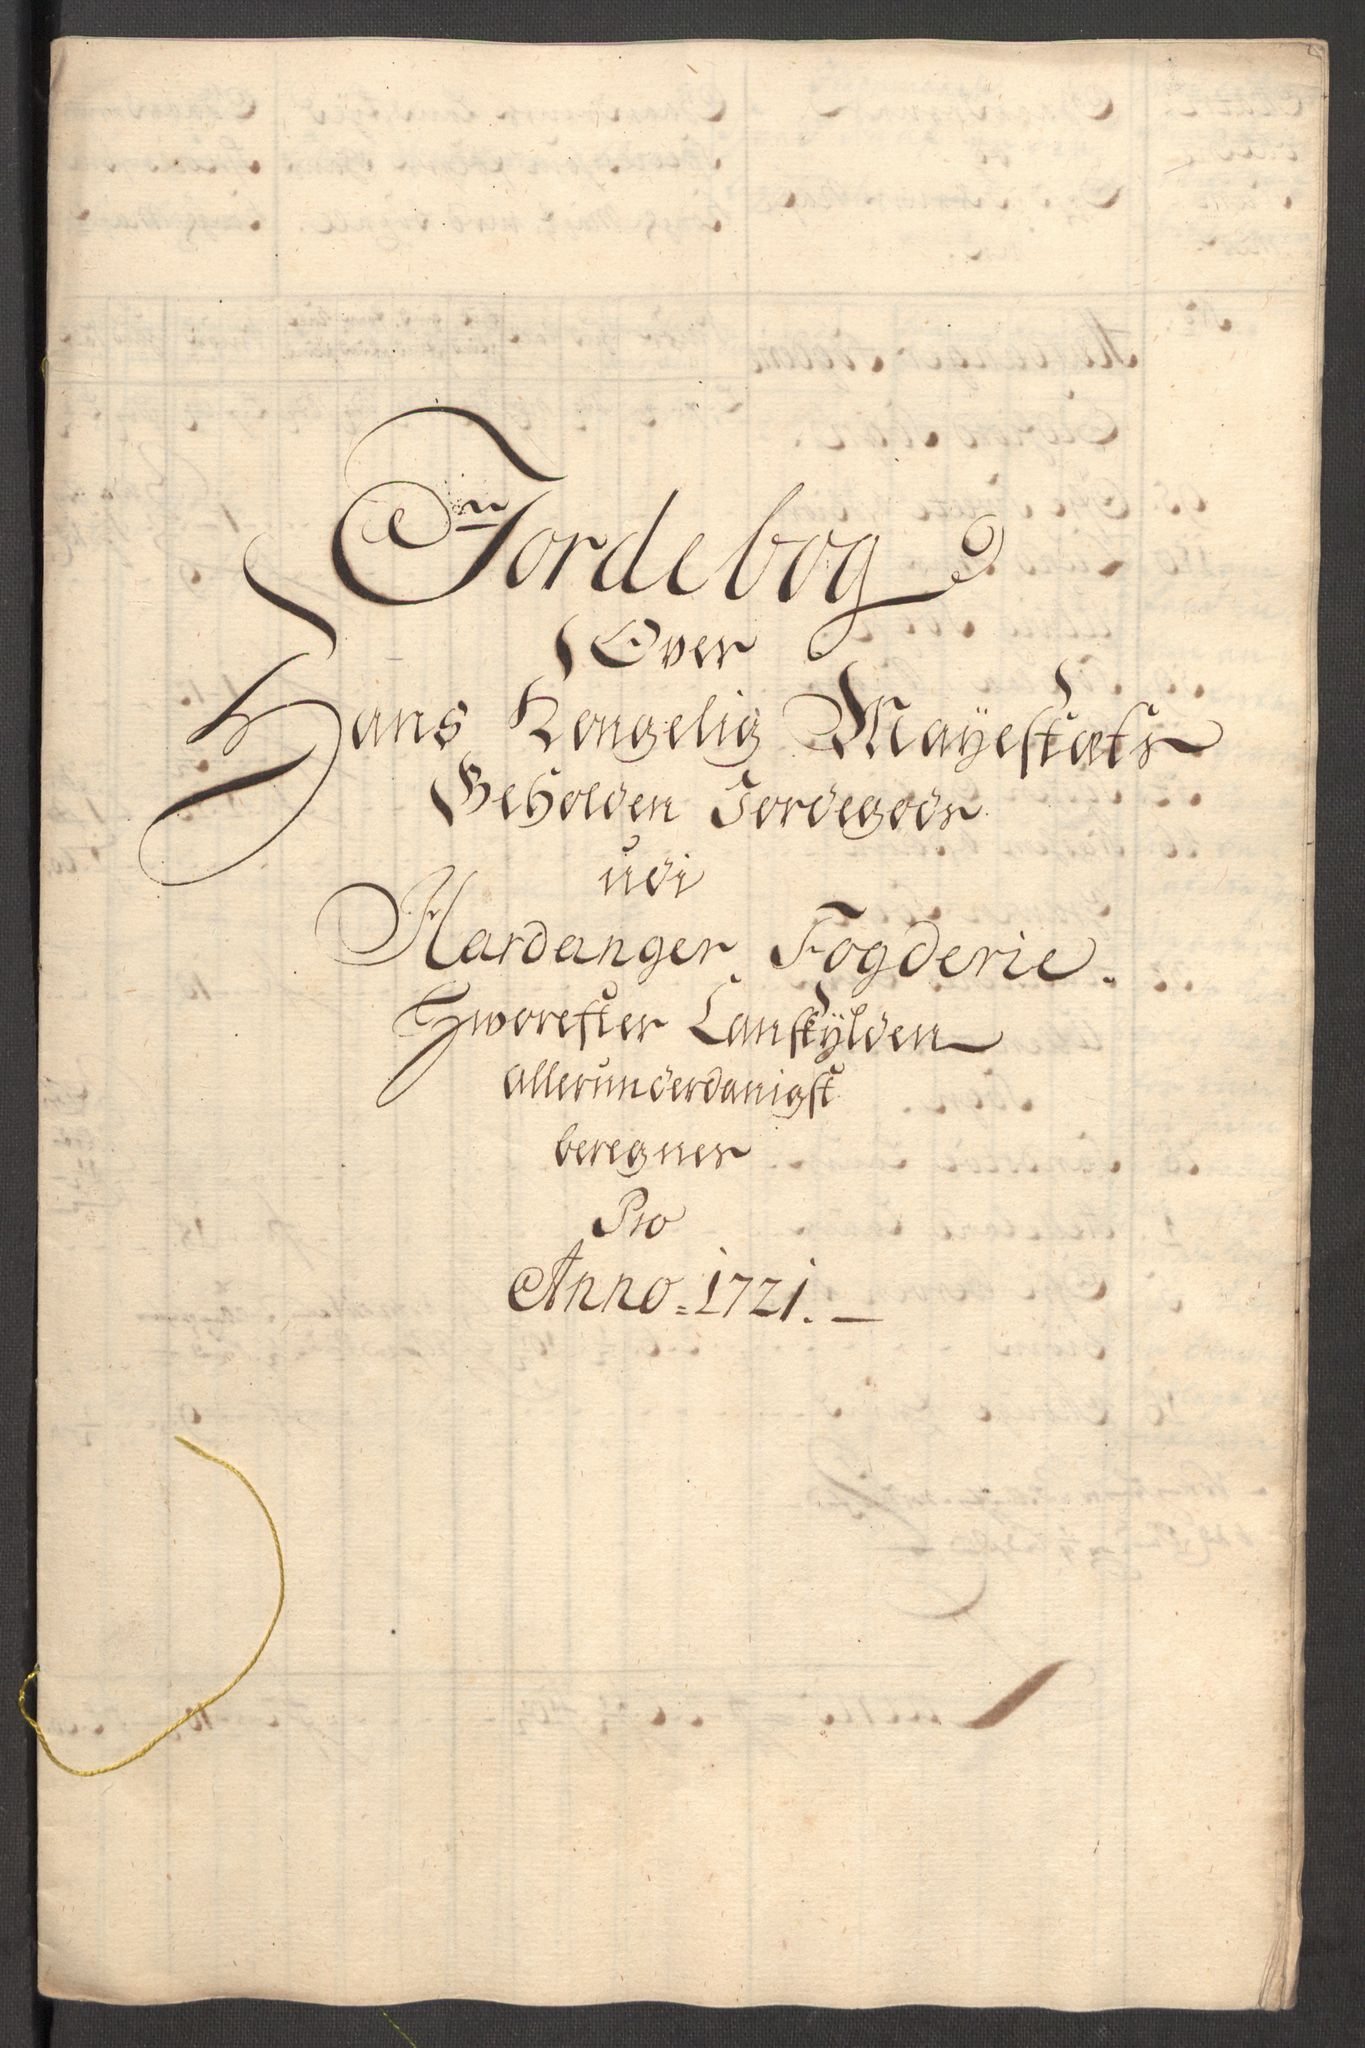 En Jordebog
Over
Hans Kongelig Mayestæts
Beholden Jordegods
udi
Hardanger Fogderie.
Hworefter Lanskÿlden
allerunderdanigst
beregnes
Pro
Anno 1721.